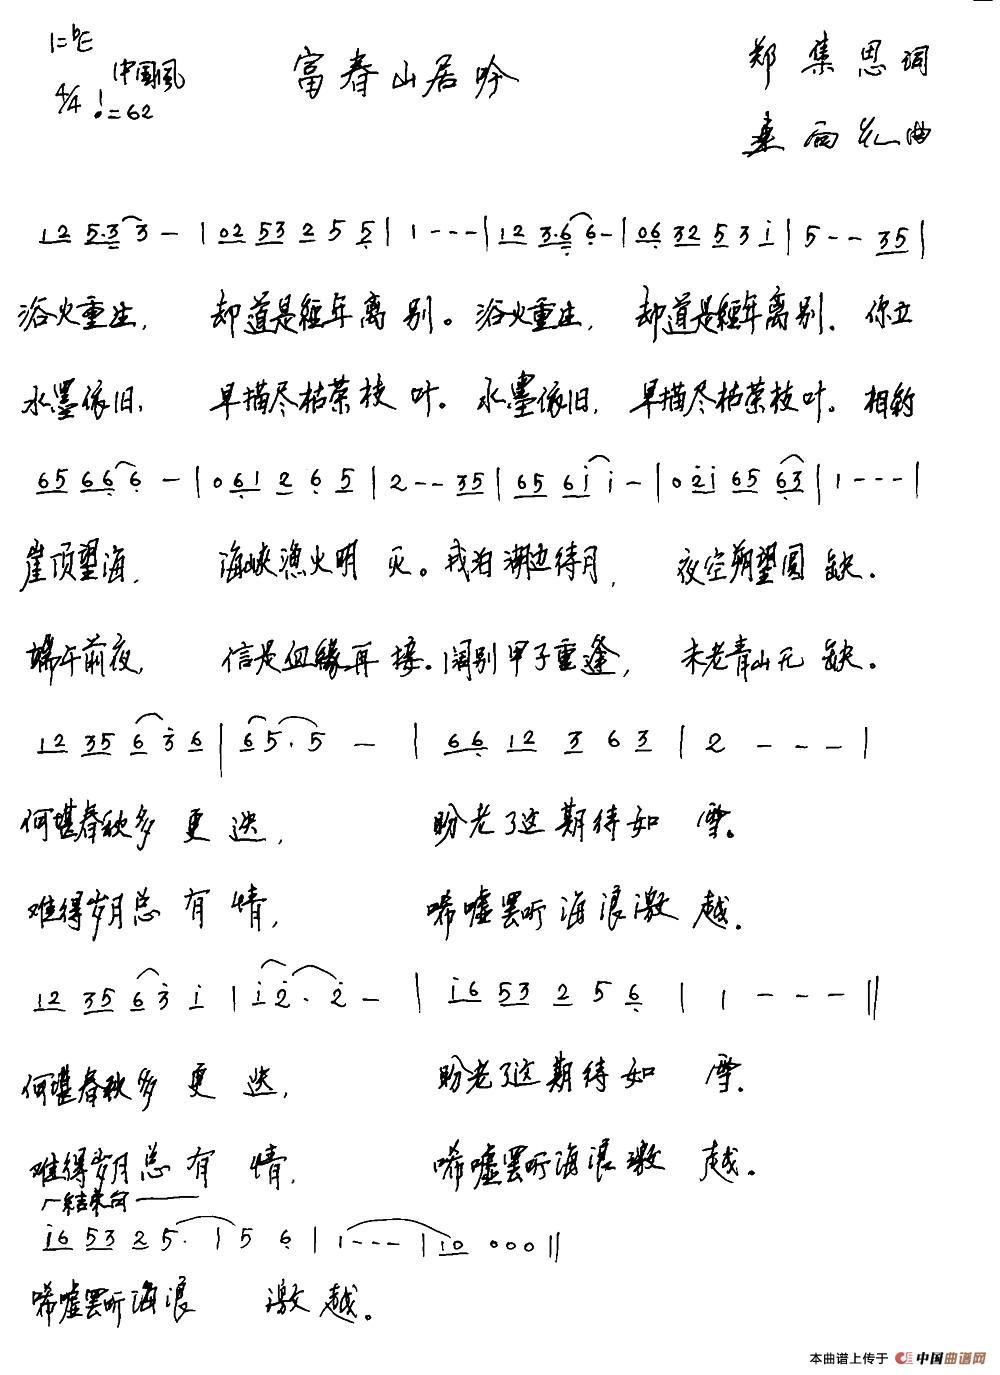 1=♭E
中国风
4/4 ♩=62
富春山居吟
郑集思词
桑雨禾曲
12 5.3 3 - | 02 53 2 5 5 | 1 - - - | 12 3.6 6 - | 06 32 5 3 i | 5 - - 35 |
浴火重生， 却道是經年离别。浴火重生， 却道是經年离别．你立
水墨依旧， 早描尽枯荣枝叶。水墨依旧， 早描尽枯荣枝叶。相約
65 66 6 - | 0 61 2 6 5 | 2 - - 35 | 65 6i i - | 0 2i 65 63 | 1 - - - |
崖顶望海， 海峡渔火明灭。我泊湖边待月， 夜空朔望圆缺．
端午前夜， 信是血緣再接．阔别甲子重逢， 未老青山无缺．
12 35 6 3 6 | 65. 5 - | 66 12 3 6 3 | 2 - - - |
何堪春秋多更迭， 盼老了这期待如雪．
难得岁月总有情， 唏嘘罢听海浪激越．
12 35 6 3 i | i2. 2 - | i6 53 2 5 6 | 1 - - - ||
何堪春秋多更迭， 盼老了这期待如雪．
难得岁月总有情， 唏嘘罢听海浪激越．
结束句
i6 53 2 5. | 5 6 | 1 - - - | 10 0 0 0 ||
唏嘘罢听海浪激越。
本曲谱上传于 中国曲谱网